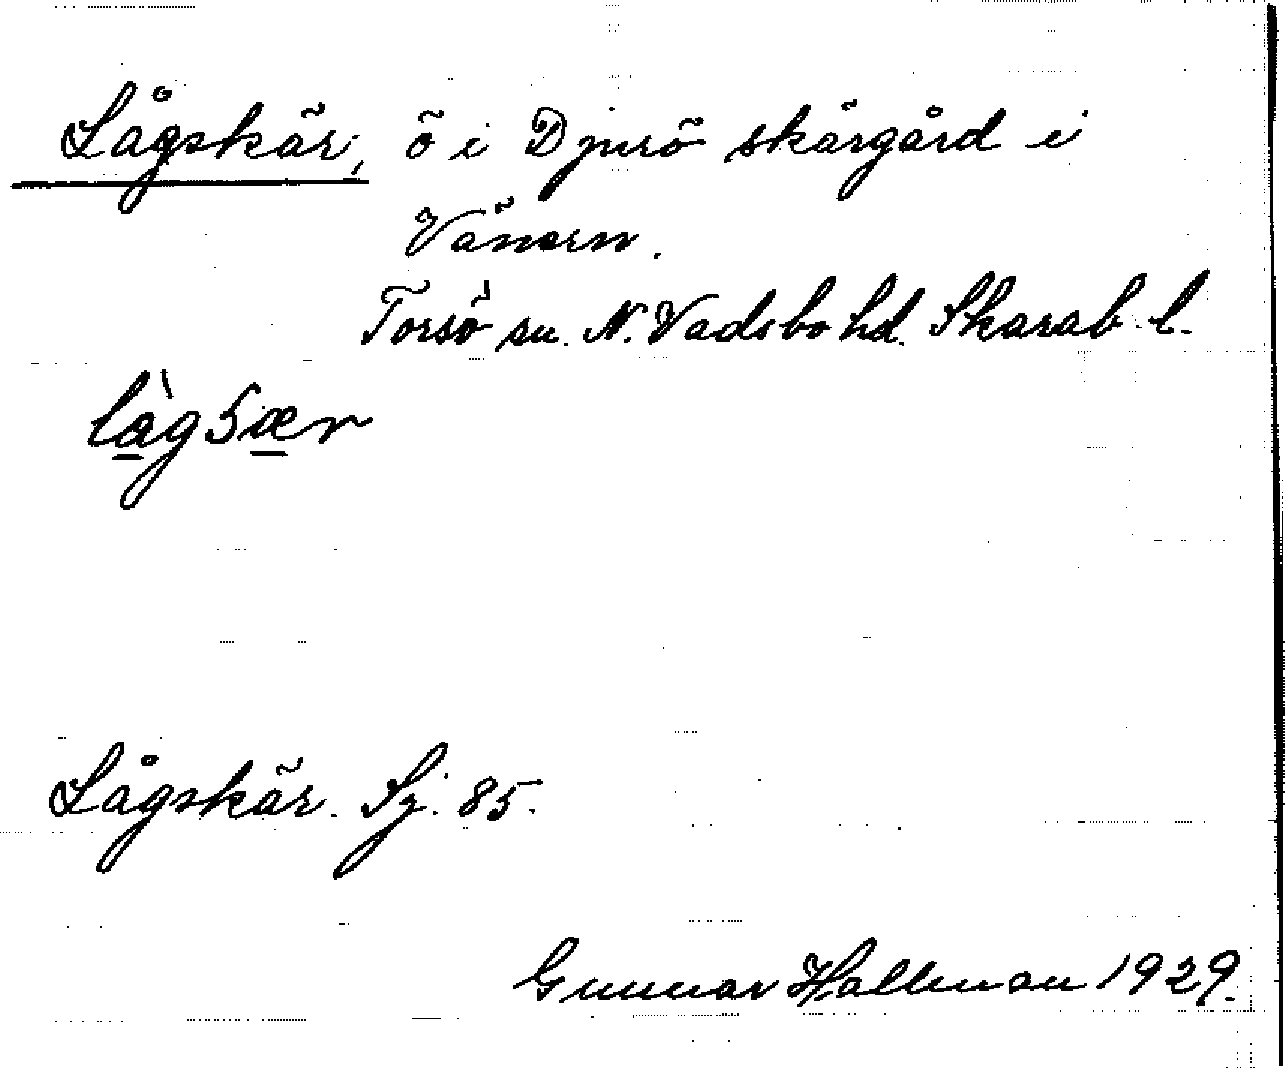 Lågskär, ö i Djurö skärgård i
Vänern.
Torsö sn. N. Vadsbo hd. Skarab. l.
Lågskär. Sj. 85.
Gunnar Hallman 1929.